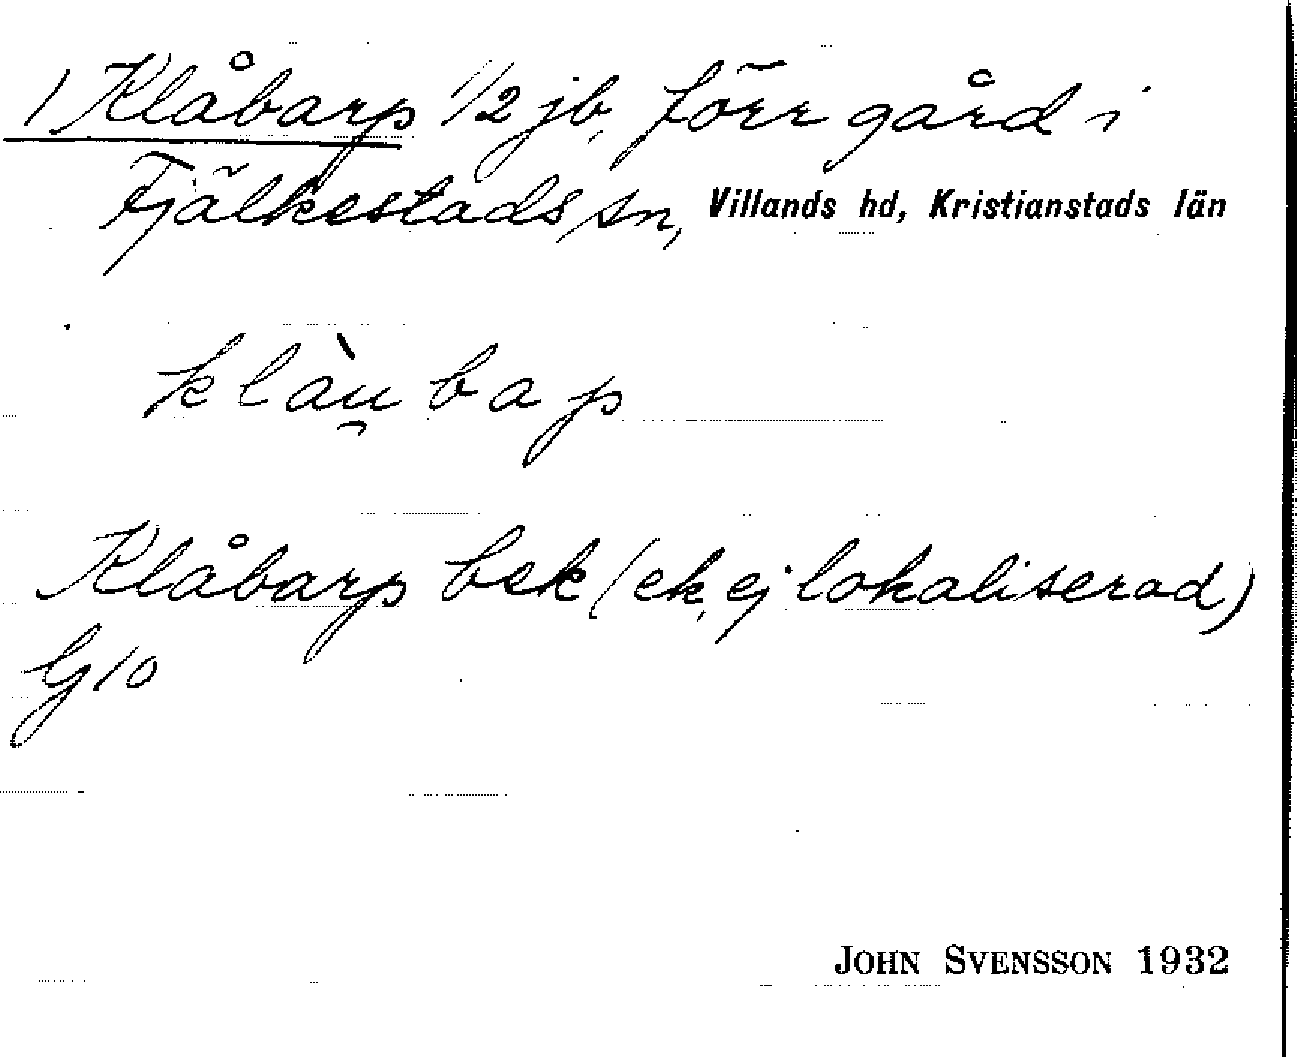 1 Klåbarp 1/2 jb, förr gård i
Fjälkestads sn, Villands hd, Kristianstads län
klàu̯bap
Klåbarp bek (ek, ej lokaliserad)
G 10
JOHN SVENSSON 1932